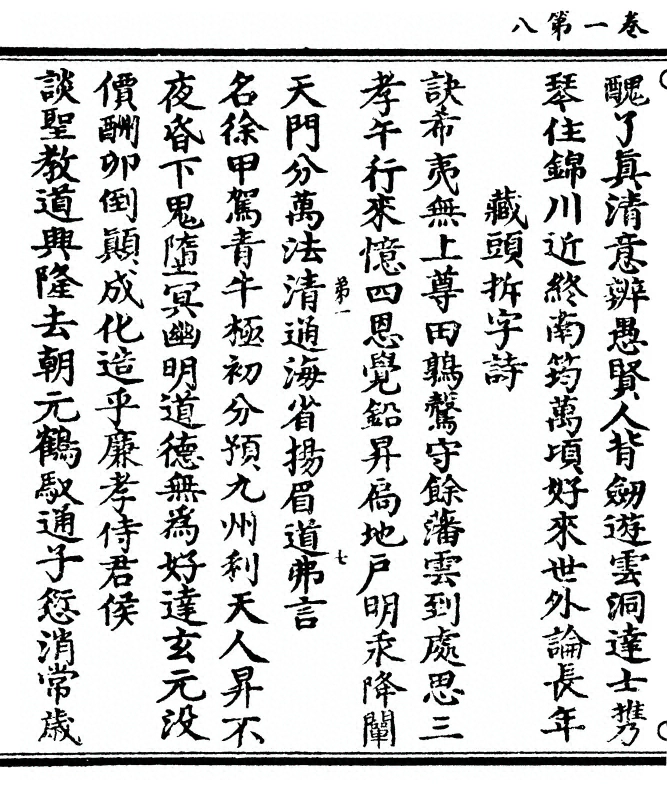 卷一第八
醜了眞清意辨愚賢人背劒遊雲洞達士攜
琴住錦川近終南筠萬頃好來世外論長年
藏頭拆字詩
訣希夷無上尊田鶉鷔守餘藩雲到處思三
孝午行來憶四恩覺鉛昇爲地戶明汞降闡
天門分萬法清通海省揚眉道弗言
第一
七
名徐甲駕青牛極初分預九州利天人昇不
夜昏下鬼墮冥幽明道德無爲好達玄元没
價酬卯倒顚成化造乎廉孝侍君侯
談聖教道興隆去朝元鶴馭通子愆消常歲